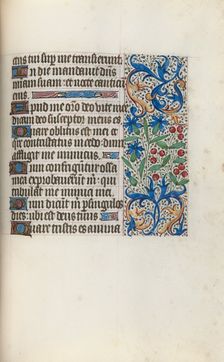 tus tui sup me transierunt
In die mandauit dns
miam suam: et nocte canticū
eius
Apud me orō deo vite mee
dicam deo susceptor meus es
Quare oblitus es mei et
quare contristatus incedo dum
affligit me inimicus
Dum confringūtur ossa
mea exprobauerūt m qui
tribulāt me inimici mei
Dum dicūt m p singulos
dies: ubi est deus tuus
Quare tristis es anima